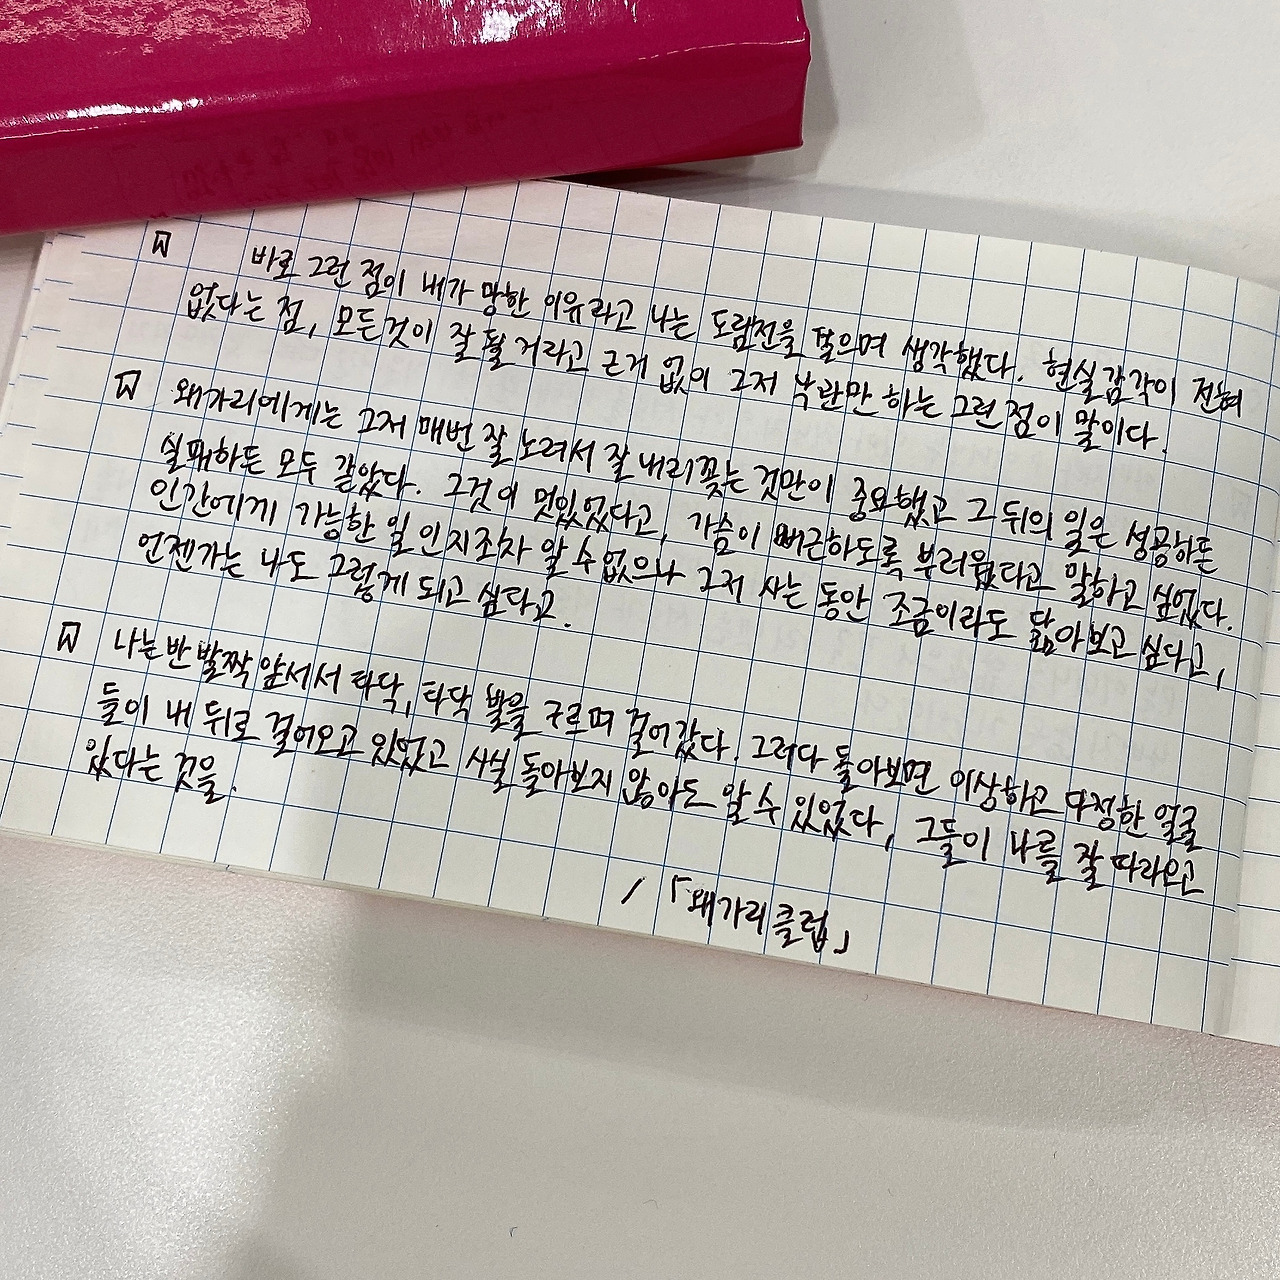 바로 그런 점이 내가 망한 이유라고 나는 도람전을 털으며 생각했다. 현실감각이 전혀
없다는 점, 모든것이 잘 될 거라고 근거 없이 그저 낙관만 하는 그런 점이 말이다.
왜가리에게는 그저 매번 잘 노려서 잘 내리꽂는 것만이 중요했고 그 뒤의 일은 성공하든
실패하든 모두 같았다. 그것이 멋있었다고, 가슴이 뻐근하도록 부러웠다고 말하고 싶었다.
인간에게 가능한 일인지조차 알 수 없으나 그저 사는 동안 조금이라도 닮아보고 싶다고,
언젠가는 나도 그렇게 되고 싶다고.
나는 반 발짝 앞세서 타닥, 타닥 발을 구르며 걸어갔다. 그러다 돌아보면 이상하고 다정한 얼굴
들이 내 뒤로 걸어오고 있었고 사실 돌아보지 않아도 알 수 있었다, 그들이 나를 잘 따라오고
있다는 것을.
/「왜가리 클럽」